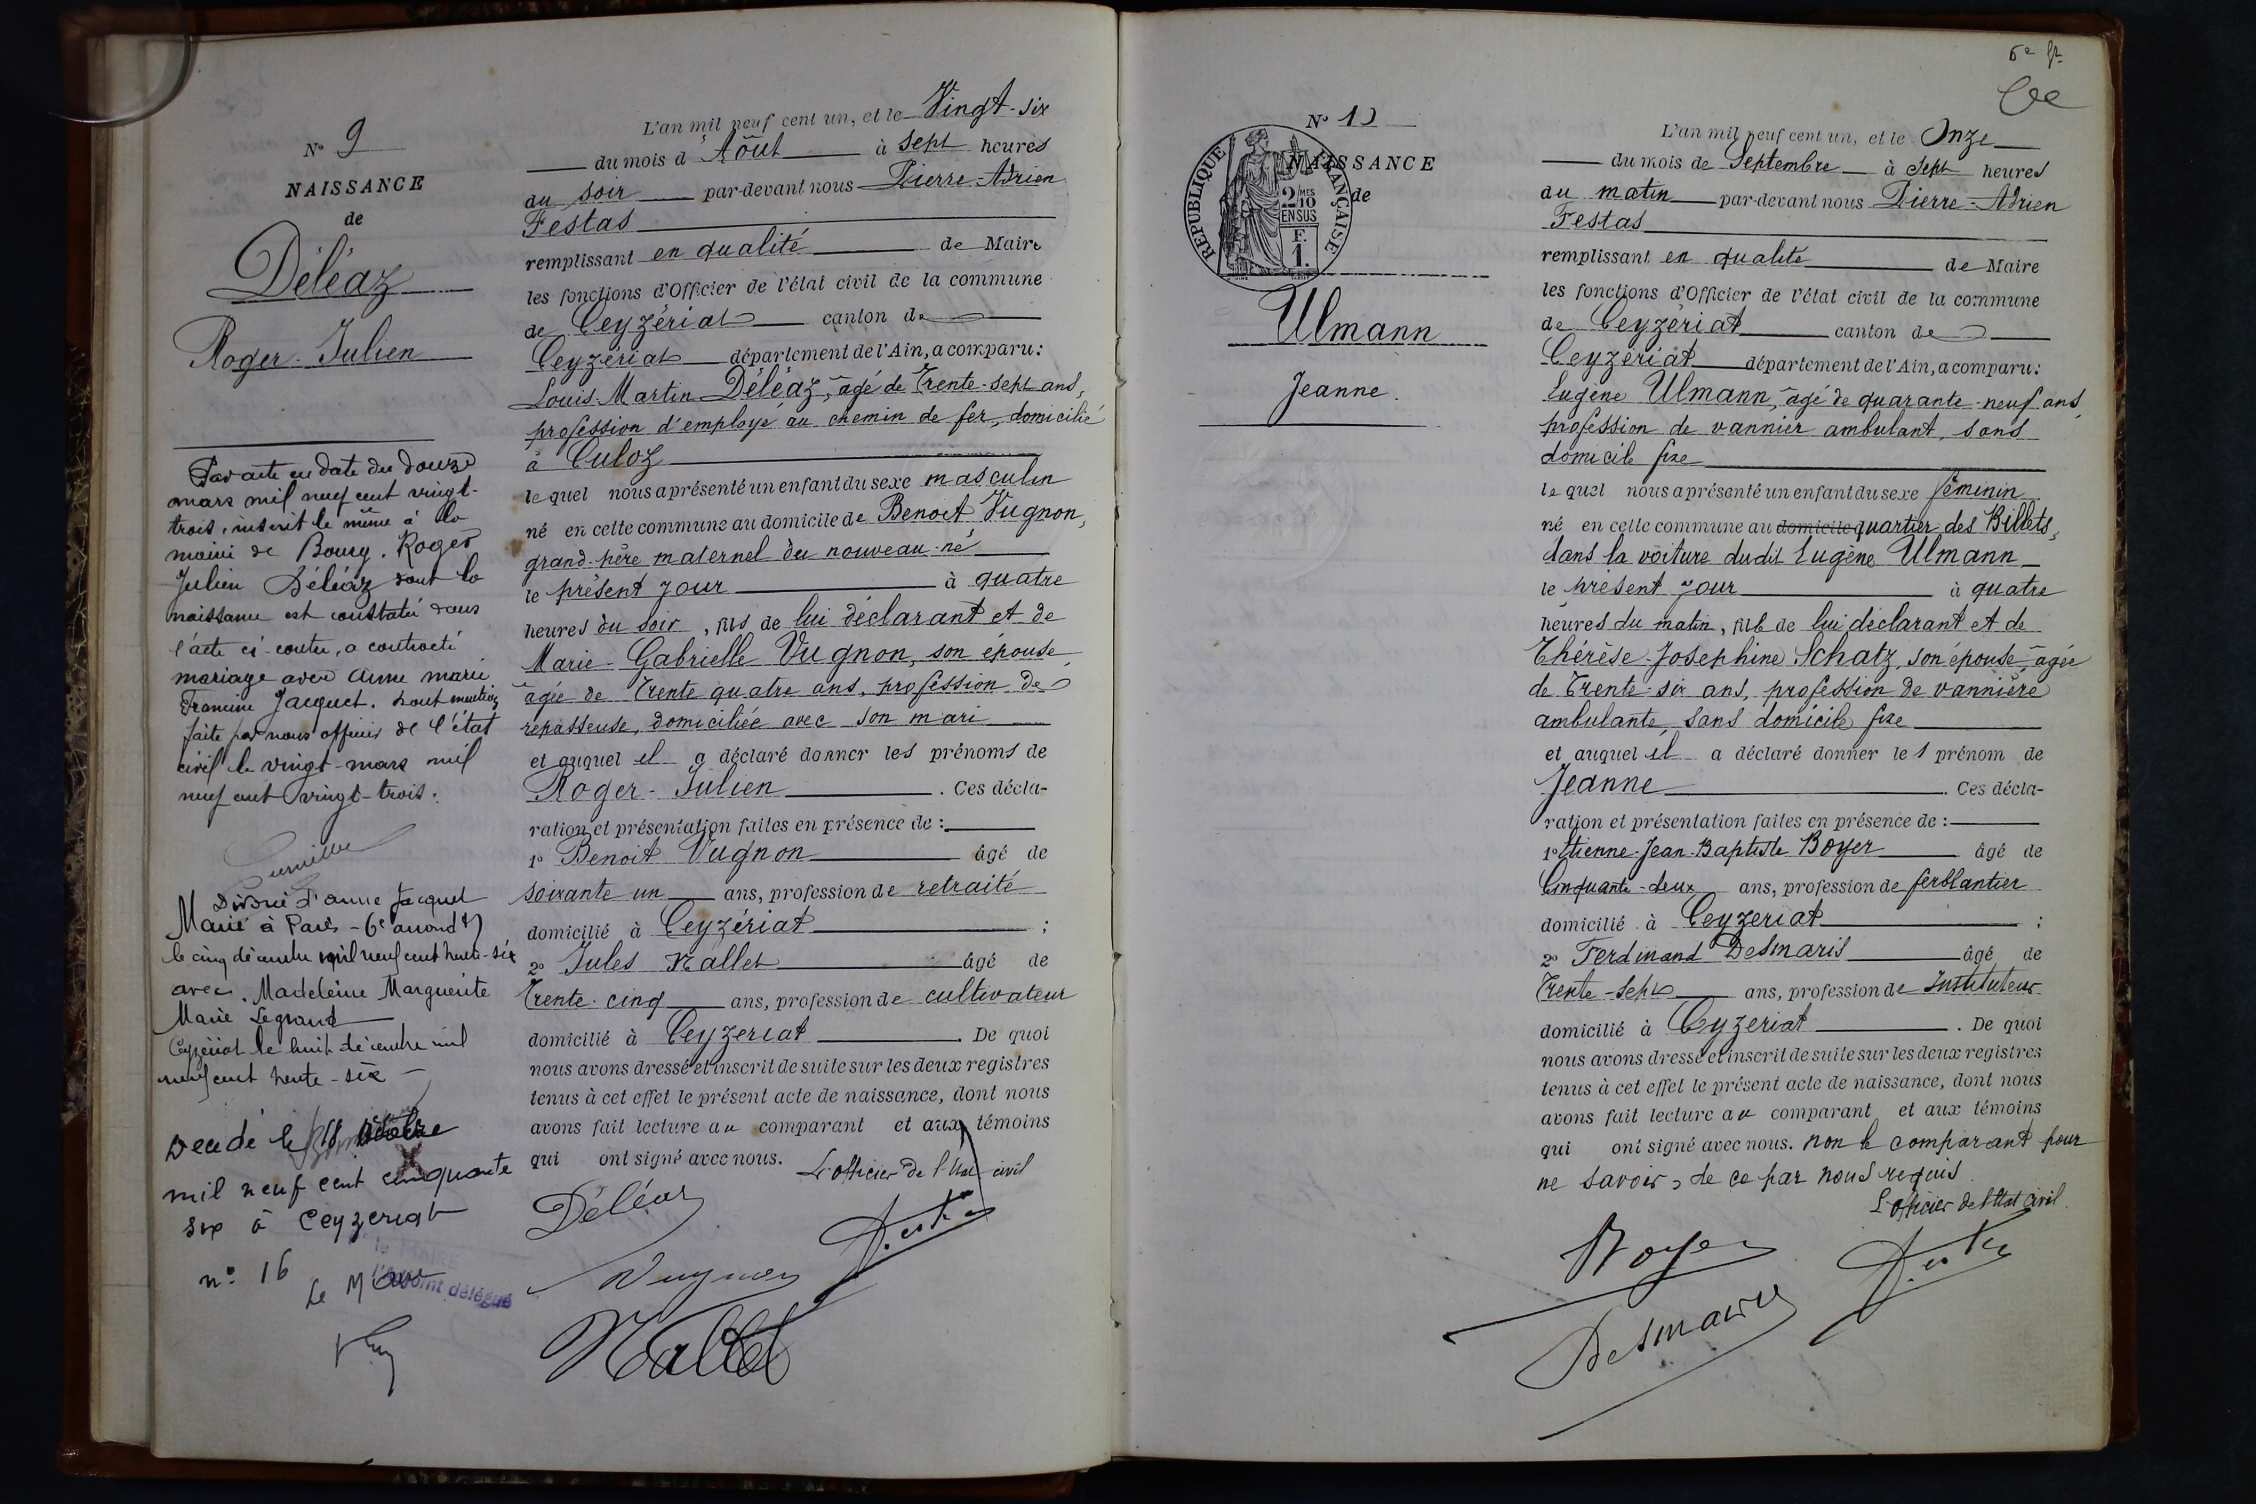 N° 9
NAISSANCE
de
Déléaz
Roger-Julien
Par acte en date du douze
mars mil neuf cent vingt-
trois, inscrit le même à la
mairie de Bourg. Roger
Julien Déléaz dont la
naissance est constatée dans
l'acte ci-contre, a contracté
mariage avec Anne Marie
Francine Jacquet. Dont mention
faite par nous officier de l'état
civil le vingt-mars mil
neuf cent vingt-trois.
Divorcé d'anne Jacquet
Marié à Paris - 6e arrondt
le cinq décembre mil neuf cent trente-six
avec. Madeleine Marguerite
Marie Legrand
Ceyzériat le huit décembre mil
neuf cent trente-six
Décédé le
mil neuf cent cinquante
six à Ceyzeriat
n° 16
le MAIRE
l'Adjoint délégué
Le Maire
L'an mil neuf cent un, et le Vingt-six
du mois d'Août à sept heures
du soir par-devant nous Pierre-Adrien
Festas
remplissant en qualité de Maire
les fonctions d'Officier de l'état civil de la commune
de Ceyzériat canton de
Ceyzériat département de l'Ain, a comparu:
Louis-Martin Déléaz, âgé de Trente-sept ans,
profession d'employé au chemin de fer, domicilié
à Culoz
lequel nous a présenté un enfant du sexe masculin
né en cette commune au domicile de Benoit Vugnon,
grand-père maternel du nouveau-né
le présent jour à quatre
heures du soir, fils de lui déclarant et de
Marie-Gabrielle Vugnon, son épouse,
âgée de Trente quatre ans, profession de
repasseuse, domiciliée avec son mari
et auquel il a déclaré donner les prénoms de
Roger-Julien. Ces décla-
ration et présentation faites en présence de:
1° Benoit Vugnon âgé de
soixante un ans, profession de retraité
domicilié à Ceyzériat ;
2° Jules Nallet âgé de
Trente-cinq ans, profession de cultivateur
domicilié à Ceyzeriat. De quoi
nous avons dressé et inscrit de suite sur les deux registres
tenus à cet effet le présent acte de naissance, dont nous
avons fait lecture au comparant et aux témoins
qui ont signé avec nous. L'officier de l'Etat civil
Déléaz
Vugnon
Nallet
N° 10
NAISSANCE
de
REPUBLIQUE FRANÇAISE
2 MES
10
EN SUS
F.
1.
Ulmann
Jeanne.
L'an mil neuf cent un, et le Onze
du mois de Septembre à sept heures
du matin par-devant nous Pierre-Adrien
Festas
remplissant en qualité de Maire
les fonctions d'Officier de l'état civil de la commune
de Ceyzériat canton de
Ceyzériat département de l'Ain, a comparu:
Eugène Ulmann, âgé de quarante-neuf ans,
profession de vannier ambulant, sans
domicile fixe
lequel nous a présenté un enfant du sexe féminin
né en cette commune au domicile quartier des Billets,
dans la voiture dudit Eugène Ulmann
le présent jour à quatre
heures du matin, fille de lui déclarant et de
Thérèse-Joséphine Schatz, son épouse, âgée
de Trente-six ans, profession de vannière
ambulante, sans domicile fixe
et auquel il a déclaré donner le 1 prénom de
Jeanne. Ces décla-
ration et présentation faites en présence de:
1° Etienne-Jean-Baptiste Boyer âgé de
Cinquante-deux ans, profession de ferblantier
domicilié à Ceyzeriat ;
2° Ferdinand Desmaris âgé de
Trente-sept ans, profession de Instituteur
domicilié à Ceyzeriat. De quoi
nous avons dressé et inscrit de suite sur les deux registres
tenus à cet effet le présent acte de naissance, dont nous
avons fait lecture au comparant et aux témoins
qui ont signé avec nous. non le comparant pour
ne savoir, de ce par nous requis.
L'officier de l'Etat civil.
Boyer
Desmaris